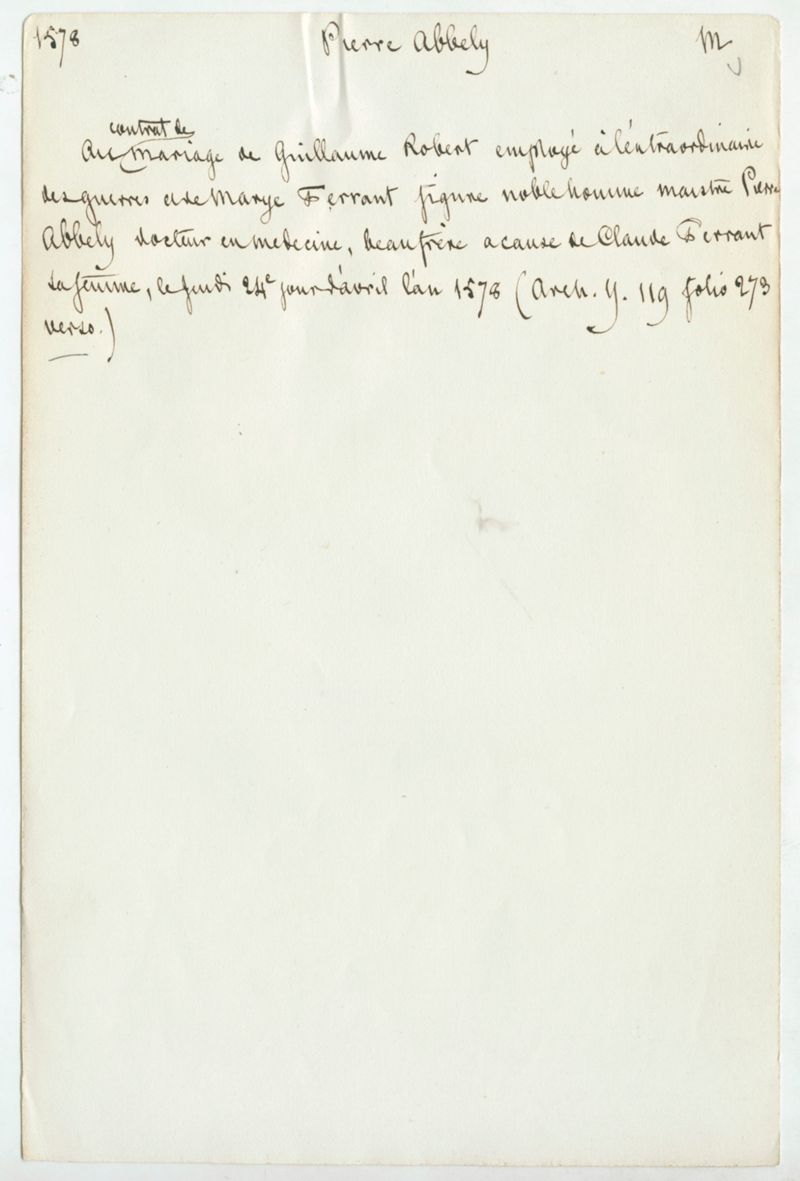 1578 Pierre Abbely M
contrat de
Au mariage de Guillaume Robert employé à l'éxtraordinaire
des guerres et de Marye Ferrant figure noble homme maistre Pierre
Abbely docteur en medecine, beaufrère a cause de Claude Ferrant
sa femme, le jeudi 24e jour d'avril l'an 1578 (Arch. Y. 119 folio 273
verso.)